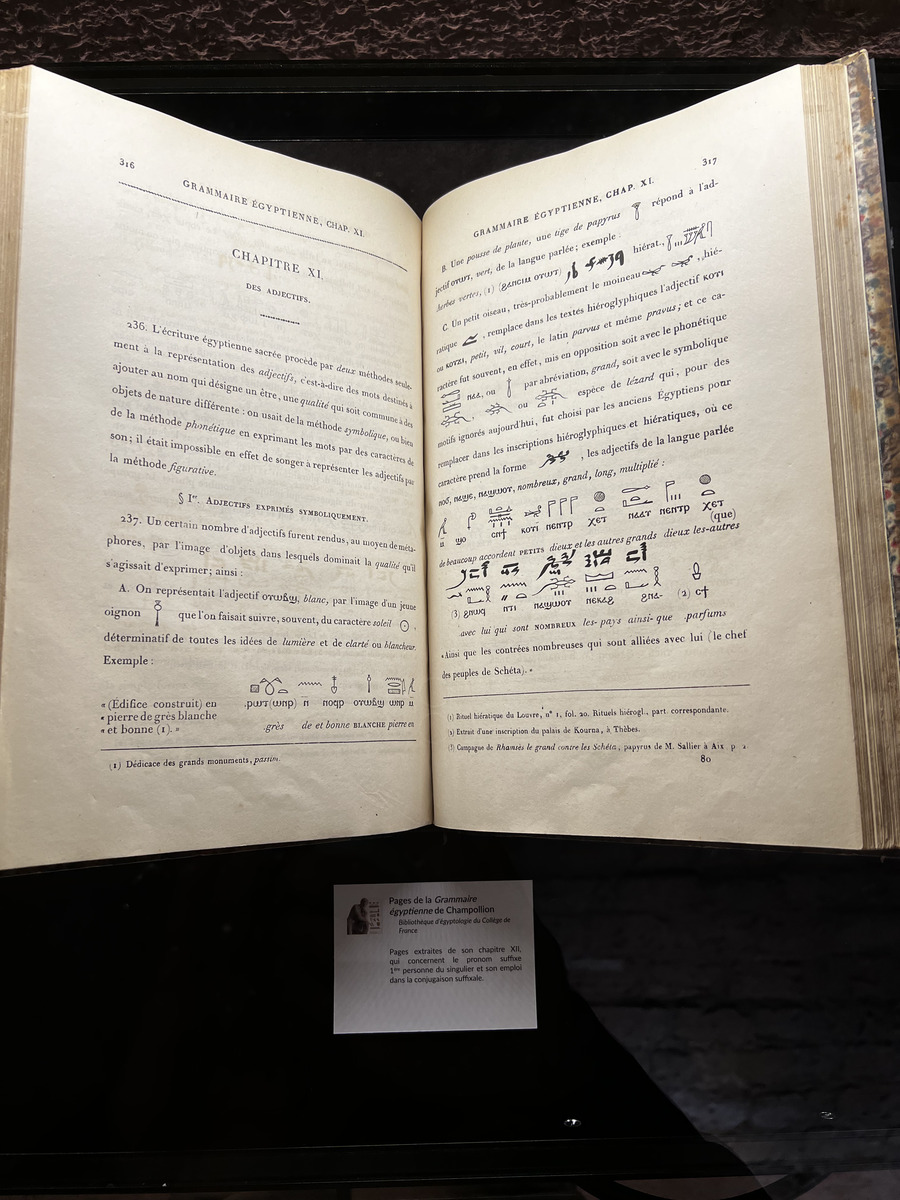 316
GRAMMAIRE ÉGYPTIENNE, CHAP. XI.
CHAPITRE XI.
DES ADJECTIFS.
236. L'écriture égyptienne sacrée procède par deux méthodes seule-
ment à la représentation des adjectifs, c'est-à-dire des mots destinés à
ajouter au nom qui désigne un être, une qualité qui soit commune à des
objets de nature différente : on usait de la méthode symbolique, ou bien
de la méthode phonétique en exprimant les mots par des caractères de
son; il était impossible en effet de songer à représenter les adjectifs par
la méthode figurative.
§ Ier. ADJECTIFS EXPRIMÉS SYMBOLIQUEMENT.
237. Un certain nombre d'adjectifs furent rendus, au moyen de méta-
phores, par l'image d'objets dans lesquels dominait la qualité qu'il
s'agissait d'exprimer; ainsi :
A. On représentait l'adjectif ⲟⲩⲱⲃϣ, blanc, par l'image d'un jeune
oignon que l'on faisait suivre, souvent, du caractère soleil ,
déterminatif de toutes les idées de lumière et de clarté ou blancheur.
Exemple :
« (Édifice construit) en
« pierre de grès blanche
« et bonne (1). »
ⲣⲱⲧ (ⲱⲏⲣ) ⲛ̄ ⲛⲟϥⲣ ⲟⲩⲱⲃϣ ⲱⲏⲣ
grès de et bonne BLANCHE pierre en
(1) Dédicace des grands monuments, passim.
317
GRAMMAIRE ÉGYPTIENNE, CHAP. XI.
B. Une pousse de plante, une tige de papyrus répond à l'ad-
jectif ⲟⲩⲱⲧ, vert, de la langue parlée; exemple :
herbes vertes, (1) ( ⲟⲩⲱⲧ) hiérat.,
C. Un petit oiseau, très-probablement le moineau , hié-
ratique , remplace dans les textes hiéroglyphiques l'adjectif ⲕⲟⲩⲓ
ou ⲕⲟⲩϫⲓ, petit, vil, court, le latin parvus et même pravus; et ce ca-
ractère fut souvent, en effet, mis en opposition soit avec le phonétique
ⲛⲁⲁ, ou par abréviation, grand, soit avec le symbolique
, ou espèce de lézard qui, pour des
motifs ignorés aujourd'hui, fut choisi par les anciens Égyptiens pour
remplacer dans les inscriptions hiéroglyphiques et hiératiques, où ce
caractère prend la forme , les adjectifs de la langue parlée
ⲛⲁϣⲉ, ⲛⲁϣⲱⲟⲩ, nombreux, grand, long, multiplié :
ϣⲟ ⲕⲟⲩⲓ ⲛⲉⲛⲧⲣ ⲭⲉⲧ ⲛⲁⲁⲩ ⲛⲉⲛⲧⲣ ⲭⲉⲧ
(que)
de beaucoup accordent PETITS dieux et les autres grands dieux les-autres
(3) ⲛⲧⲓ ⲛⲁϣⲱⲟⲩ (2)
avec lui qui sont NOMBREUX les-pays ainsi-que parfums
«Ainsi que les contrées nombreuses qui sont alliées avec lui (le chef
des peuples de Schéta).»
(1) Rituel hiératique du Louvre, n° 1, fol. 20. Rituels hiérogl., part. correspondante.
(2) Extrait d'une inscription du palais de Kourna, à Thèbes.
(3) Campagne de Rhamsès le grand contre les Schéta, papyrus de M. Sallier à Aix p 2
80
Pages de la Grammaire
égyptienne de Champollion
Bibliothèque d'égyptologie du Collège de
France
Pages extraites de son chapitre XII,
qui concernent le pronom suffixe
1ère personne du singulier et son emploi
dans la conjugaison suffixale.